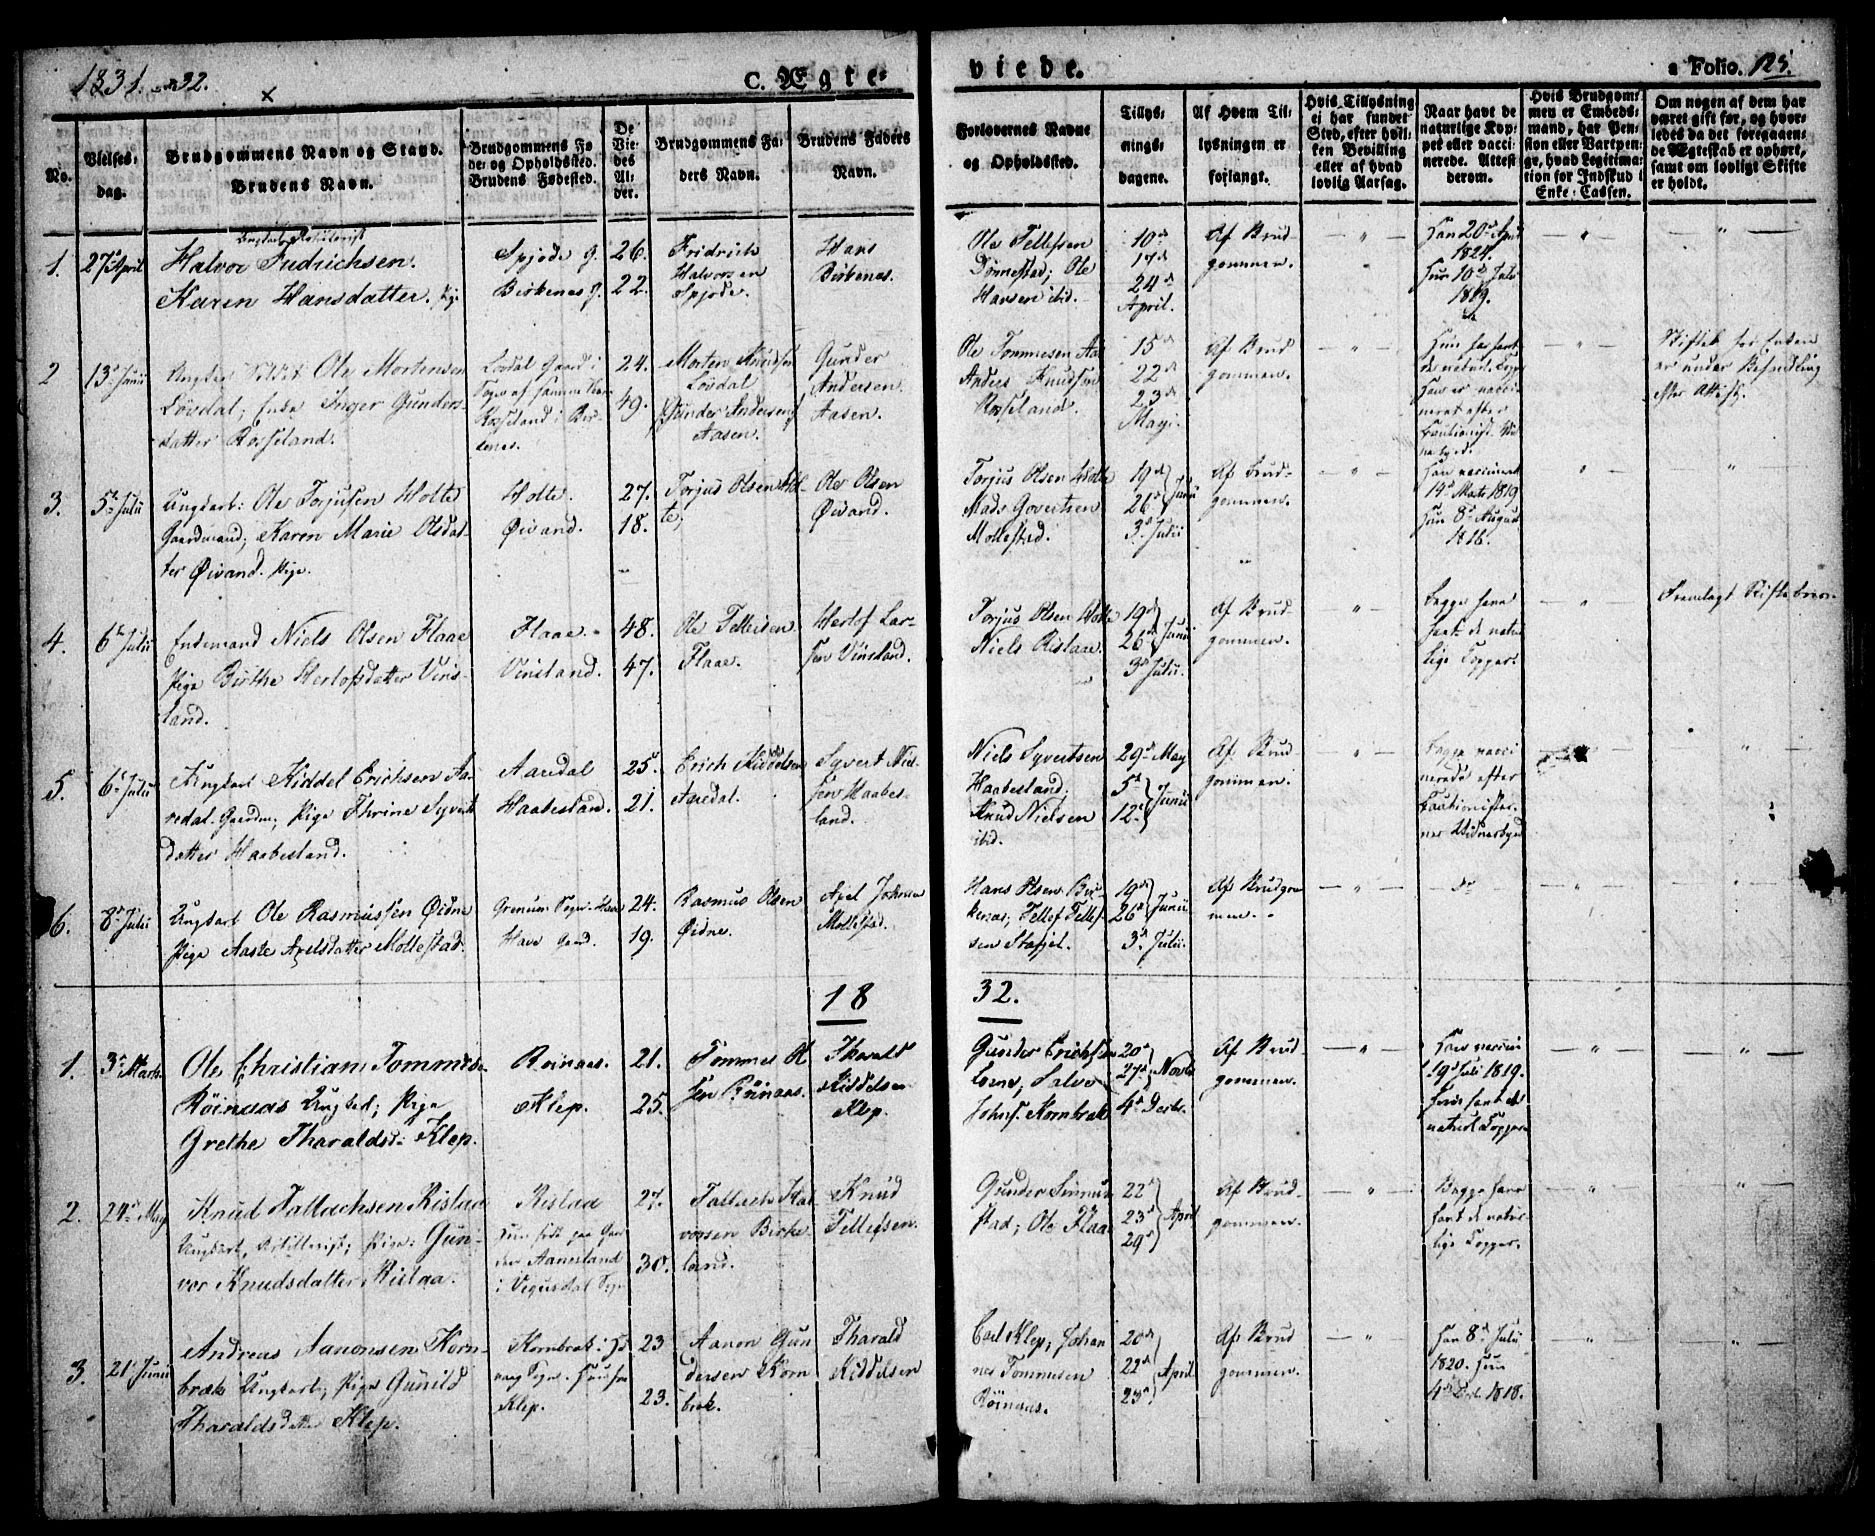 1831. 32.
C. Ægte-
viede.
a Folio. 125.
No.
Vielses-
dag.
Brudgommens Navn og Stand.
Brudens Navn.
Brudgommens Fø-
de- og Opholdssted.
Brudens Fødested.
De
Vie-
des
Al-
der.
Brudgommens Fa-
ders Navn.
Brudens Faders
Navn.
Forlovernes Navne
og Opholdssted.
Tillys-
nings-
dagene.
Af Hvem Til-
lysningen er
forlangt.
Hvis Tillysning
ei har fundet
Sted, efter hvil-
ken Bevilling
eller af hvad
lovlig Aarsag.
Naar have de
naturlige Kop-
per eller vacci-
nerede. Attest
derom.
Hvis Brudgom-
men er Embeds-
mand, har Pen-
sion eller Vartpen-
ge, hvad Legitima-
tion for Indskud i
Enke-Cassen.
Om nogen af dem har
været gift før, og hvor-
ledes da det foregaaen-
de Ægteskab er ophørt,
samt om lovligt Skifte
er holdt.
1. 27 April
Halvor Fredrichsen.
Karen Hansdatter. Pige
Spjode G.
Birkenes G.
26.
22.
Fridrich
Halvorsen
Spjode.
Hans
Birkenes.
Ole Tellefsen
Dønnestad; Ole
Hansen ibid.
10de
17de
24de
April.
Af Brud-
gommen.
Han 20de April
1824.
Hun 10de Juli
1819.
2 13de Junii
Ungkar Ole Mortensen
Lövdal; Enke Inger Gunders-
datter Rosseland.
Lovdal Gaard i
Rosseland i Bir-
kenes.
24.
49.
Morten Knudsen
Lövdal
Gunder Andersen
Aasen.
Gunder
Andersen
Aasen.
Ole Tommesen Aa
Anders Knudsen
Rosseland.
15de
22de
23de
Maji.
Af Brud
gommen.
Hun har havt
de naturl. Kopp
Han er vacci-
neret efter
Skifte for Enken
er under Behandling
efter Attest.
3. 5te Julii
Ungkarl: Ole Torjusen Holte
Gaardmand; Karen Marie Olsdat-
ter Øivand. Pige.
Holte.
Øivand.
27.
18.
Torjus Olsen Hol-
te;
Ole Olsen
Øivand.
Torjus Olsen Holte
Mads Govertsen
Mollestad.
19de
26de Junii
3de Julii
Af Brud-
gommen.
Han vaccineret
14de Marts 1819
Hun 8de August
1816.
4. 6te Julii
Enkemand Niels Olsen Flaae
Pige Birthe Herlofsdatter Vins-
land.
Flaae.
Vinsland.
48.
47.
Ole Tellefsen
Flaae.
Herlof Lar-
sen Vinsland.
Torjus Olsen Holte
Niels Rislaae.
19de
26de Junii
3de Julii.
Af Brud
gommen.
Begge have
havt de natur
lige Kopper.
Fremlagt Skiftebrev
5. 6te Julii
Ungkarl Kiddel Erichsen Aa-
redal. Gaardm; Pige Thrine Syverts
datter Haabesland.
Aaredal
Haabesland.
25.
21.
Erich Kiddelsen
Aaredal.
Syvert Niel-
sen Haabes
land.
Niels Syvertsen
Haabesland;
Knud Nielsen
ibid.
29de May
5te
12te Junii
Af Brud
gommen.
Begge vacci
nerede efter
6. 8de Julii
Ungkarl Ole Rasmussen Øidne
Pige Aaste Axelsdatter Mollestad.
24.
19.
Rasmus Olsen
Øidne.
Axel Johnsen
Mollestad.
Hans Olsen Bir-
kenes; Tellef Tellef-
sen Stapjel.
19de
26de Junii
3de Julii.
Af Brudgom
men.
do
18 32.
1. 3de Marts
Ole Christian Tommes.
Röinaas Ungkarl; Pige
Grethe Tharaldsd: Klep.
Roinaas.
Klep.
21.
25.
Tommes Ol
sen Röinaas.
Tharald
Kiddelsen
Klep.
Gunder Erichsen
Loene; Salve
Johns. Kornbrek
20de
27de Novbr
4de Decbr.
Af Brud-
gommen.
Han vaccin
19de Juli 1819.
Hun havt de
naturl. Kopper
2. 24de May
Knud Tallachsen Rislaa
Ungkarl, Artillerist; Pige: Gun-
vor Knudsdatter Rislaa.
Rislaa
Hun født paa Gaar
den Aanesland
i Vegusdal Sogn
27.
30.
Tallach Hal
vorsen Birke
land.
Knud
Tellefsen.
Gunder Sennum
stad; Ole Flaae
22de
23de April
29de
Af Brud-
gommen.
Begge have
havt de natur-
lige Kopper.
3. 21de Junii
Andreas Aanonsen Korn-
bræk Ungkarl; Pige Gunild
Tharaldsdatter Klep.
Klep.
23
23.
Aanon Gun
dersen Korn
bræk.
Tharald
Kiddelsen
Carl Klep, Johan
nes Tommesen
Röinaas.
20de
22de April
23de
Af Brud
gommen.
Han 8de Julii
1820. Hun
4de Decb. 1818.